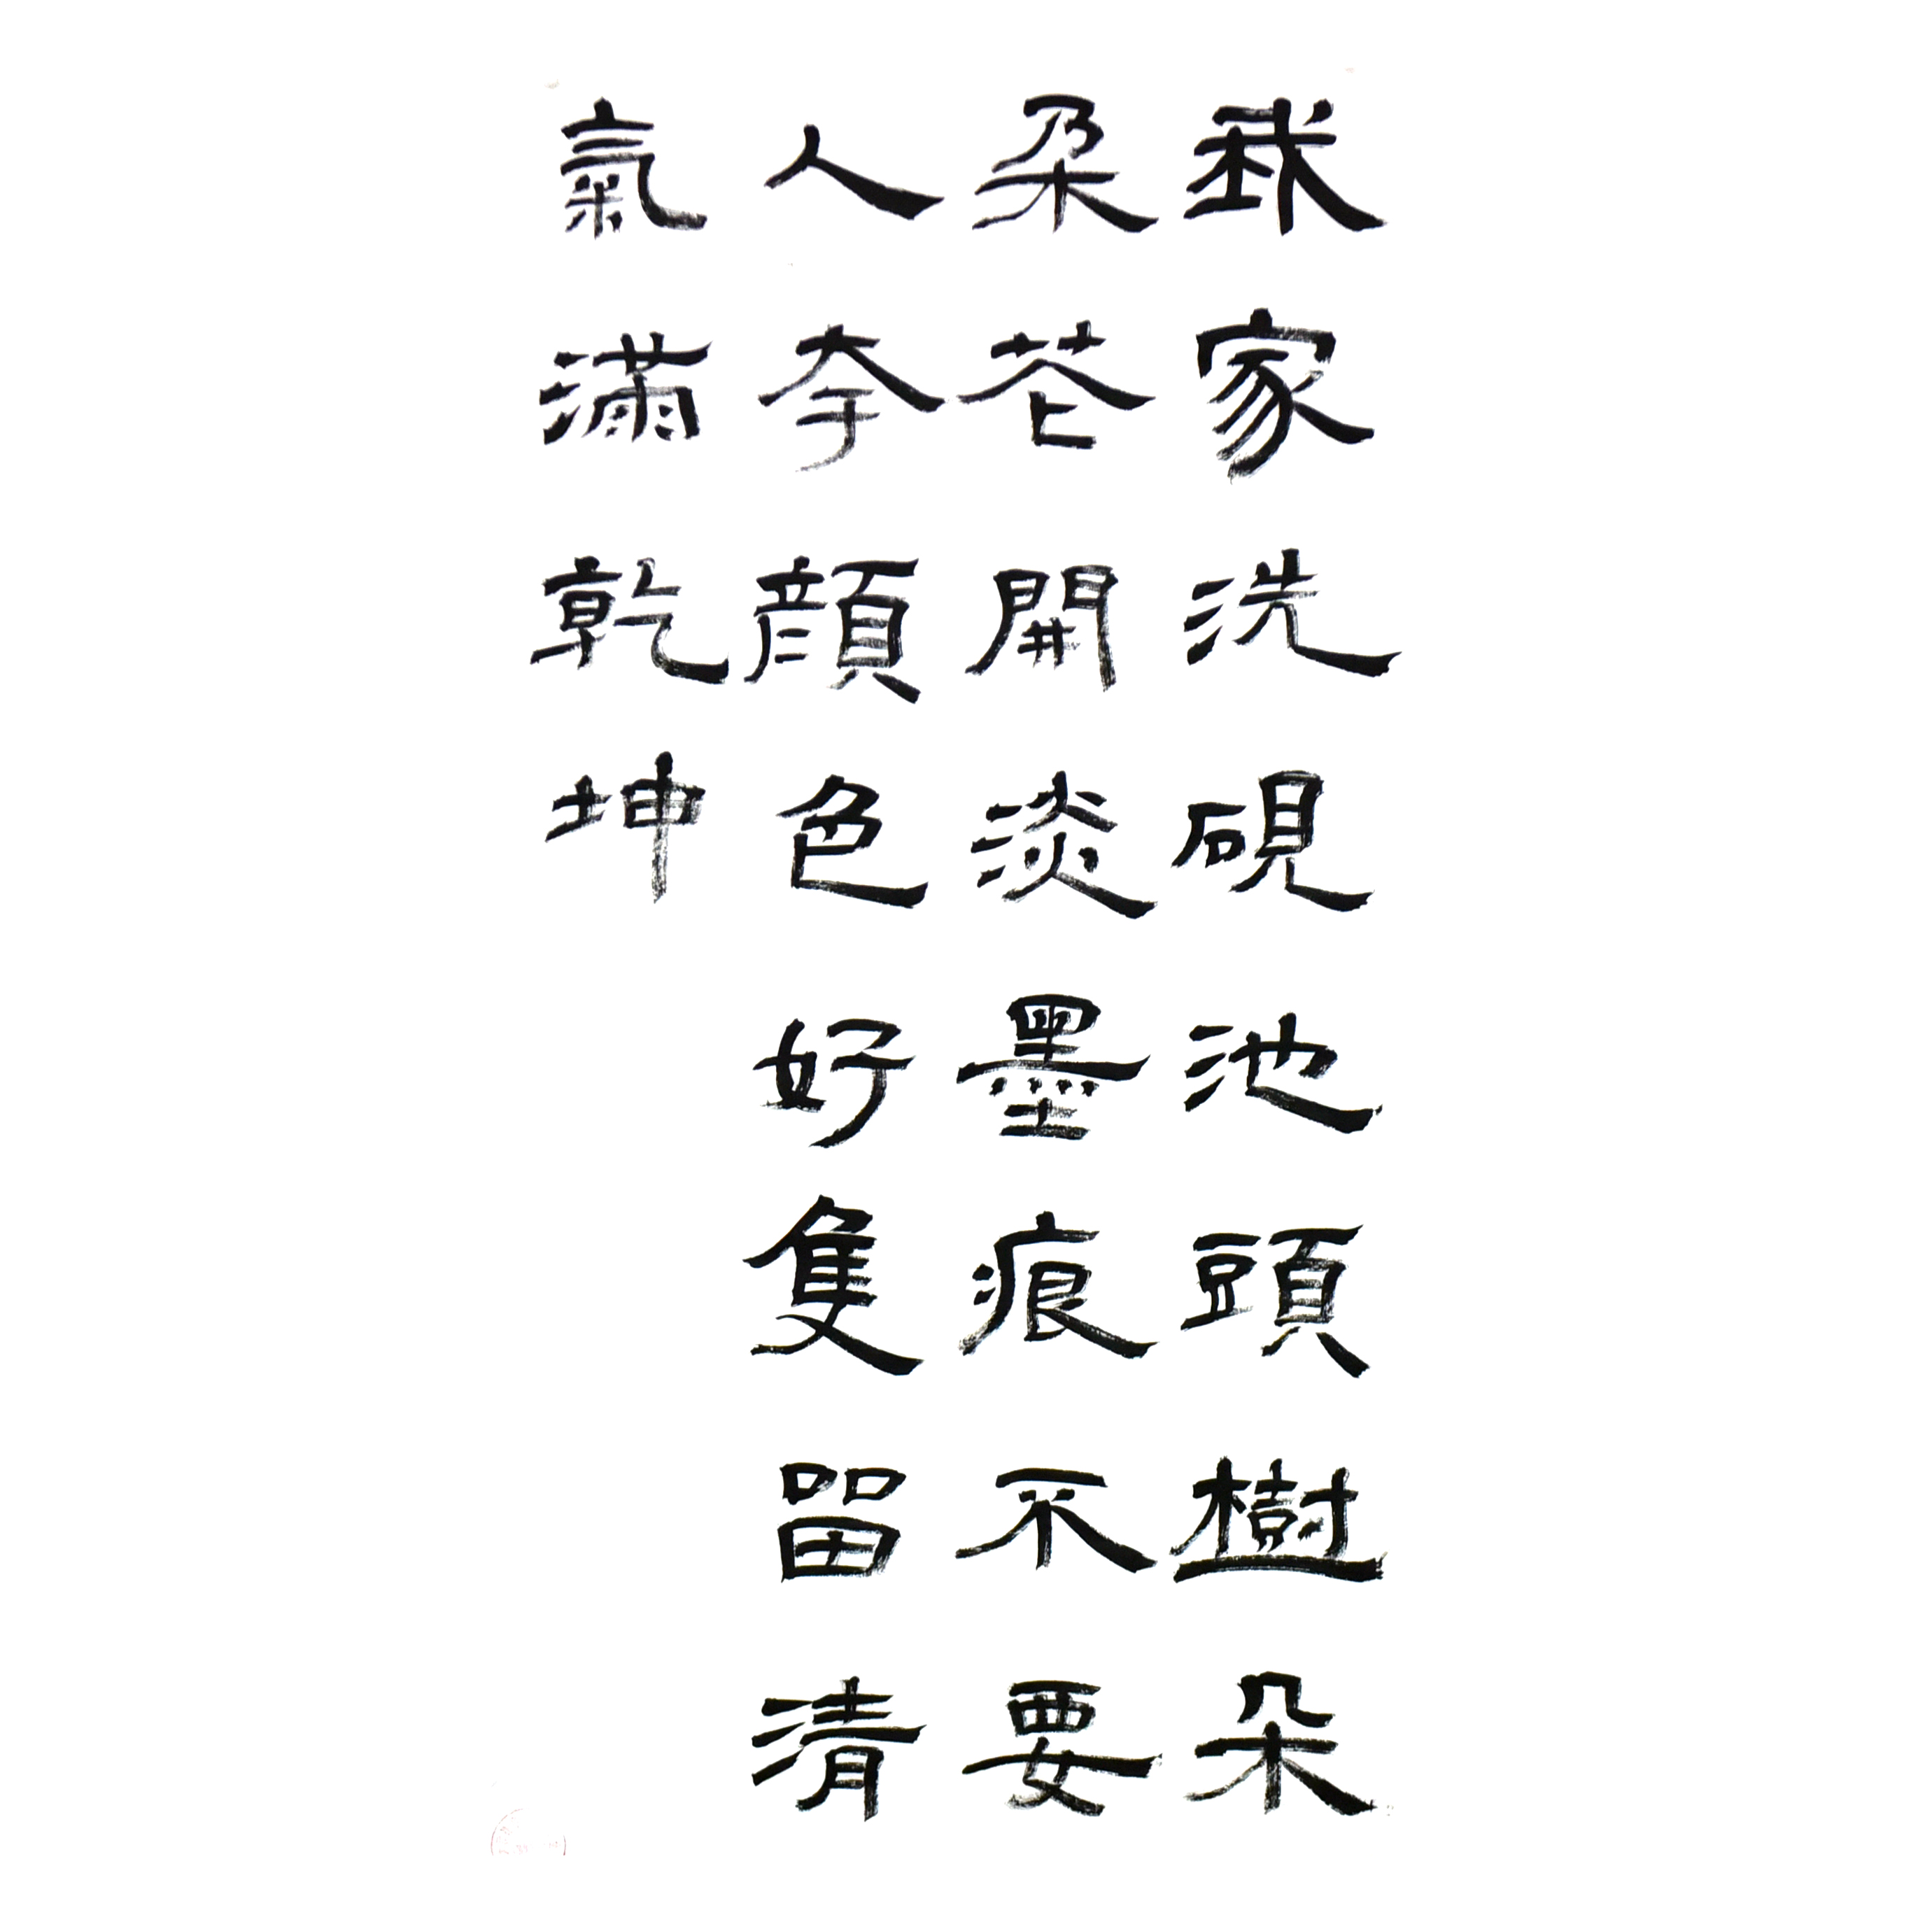 我家洗硯池頭樹朵
朵花開淡墨痕不要
人夸顔色好隻留清
氣滿乾坤